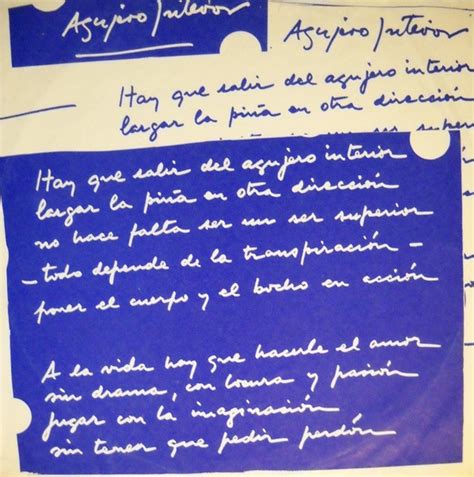 Agujero Interior
Agujero Interior
Hay que salir del agujero interior
largar la piña en otra dirección
Hay que salir del agujero interior
largar la piña en otra dirección
no hace falta ser un ser superior
- todo depende de la transpiración -
poner el cuerpo y el bocho en acción
A la vida hay que hacerle el amor
sin drama, con locura y pasión
jugar con la imaginación
sin tener que pedir perdón